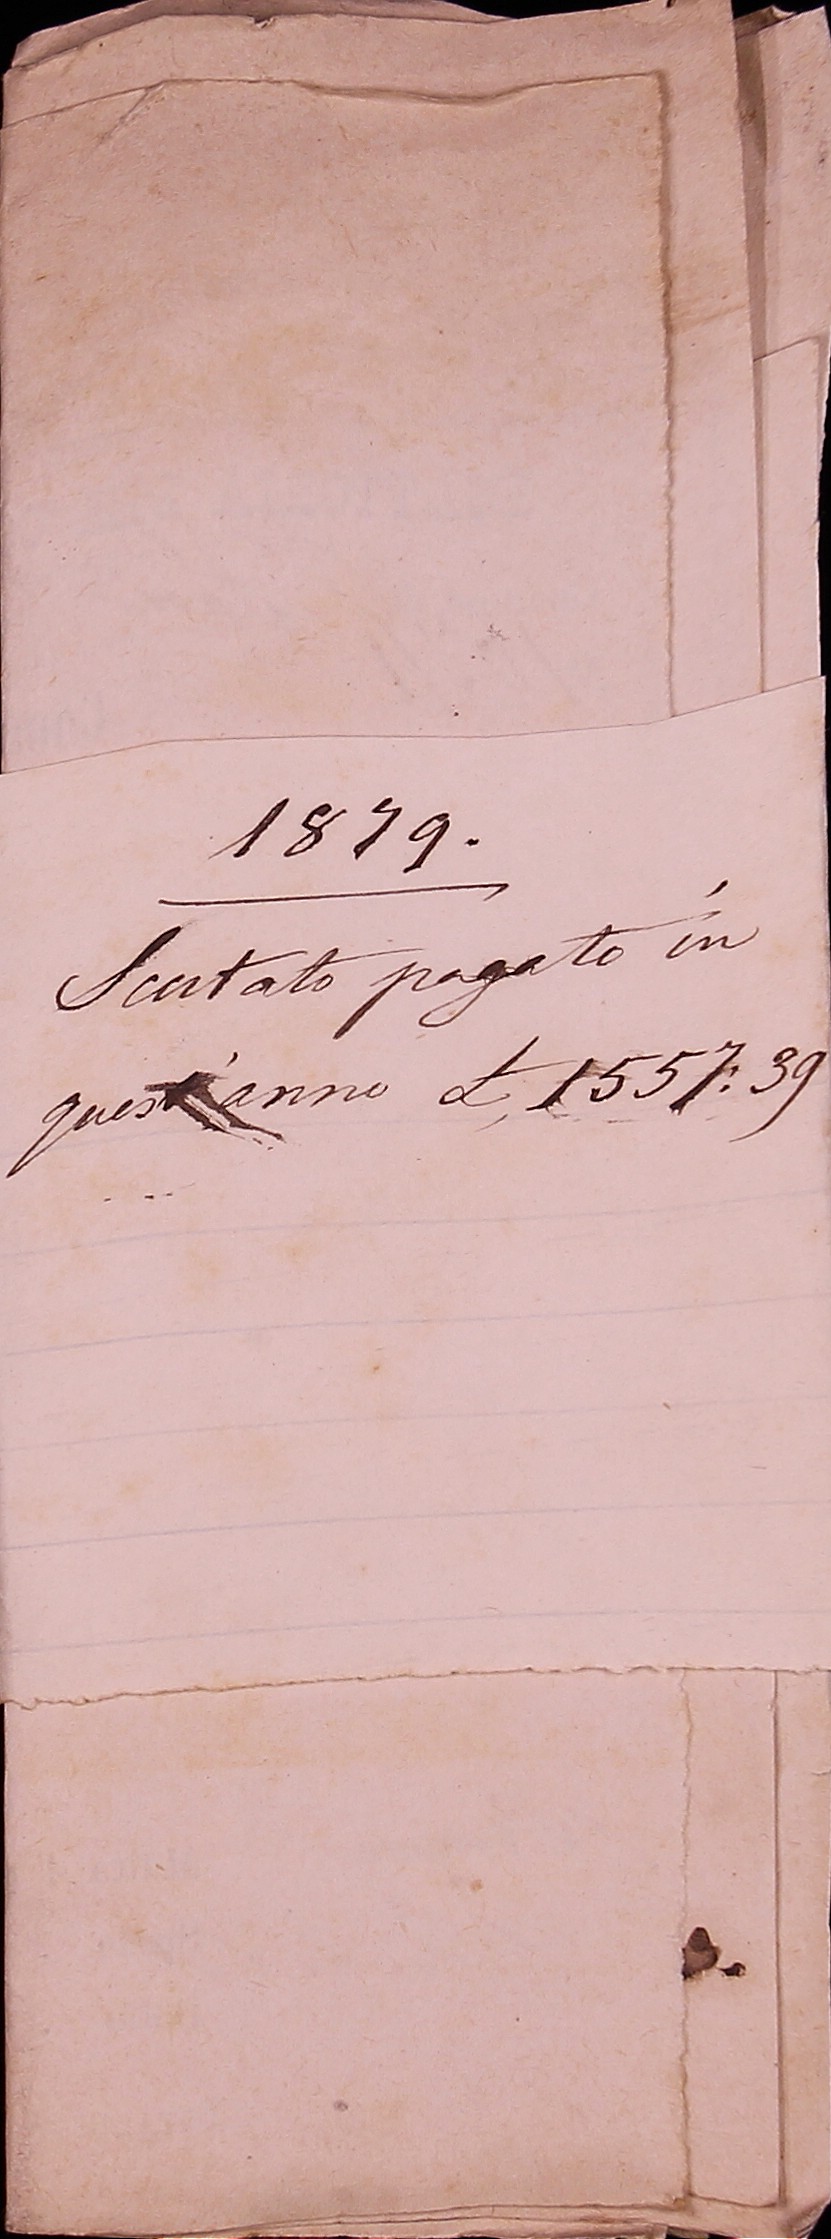 1879.
Scutato pagato in
quest'anno £ 1557:39